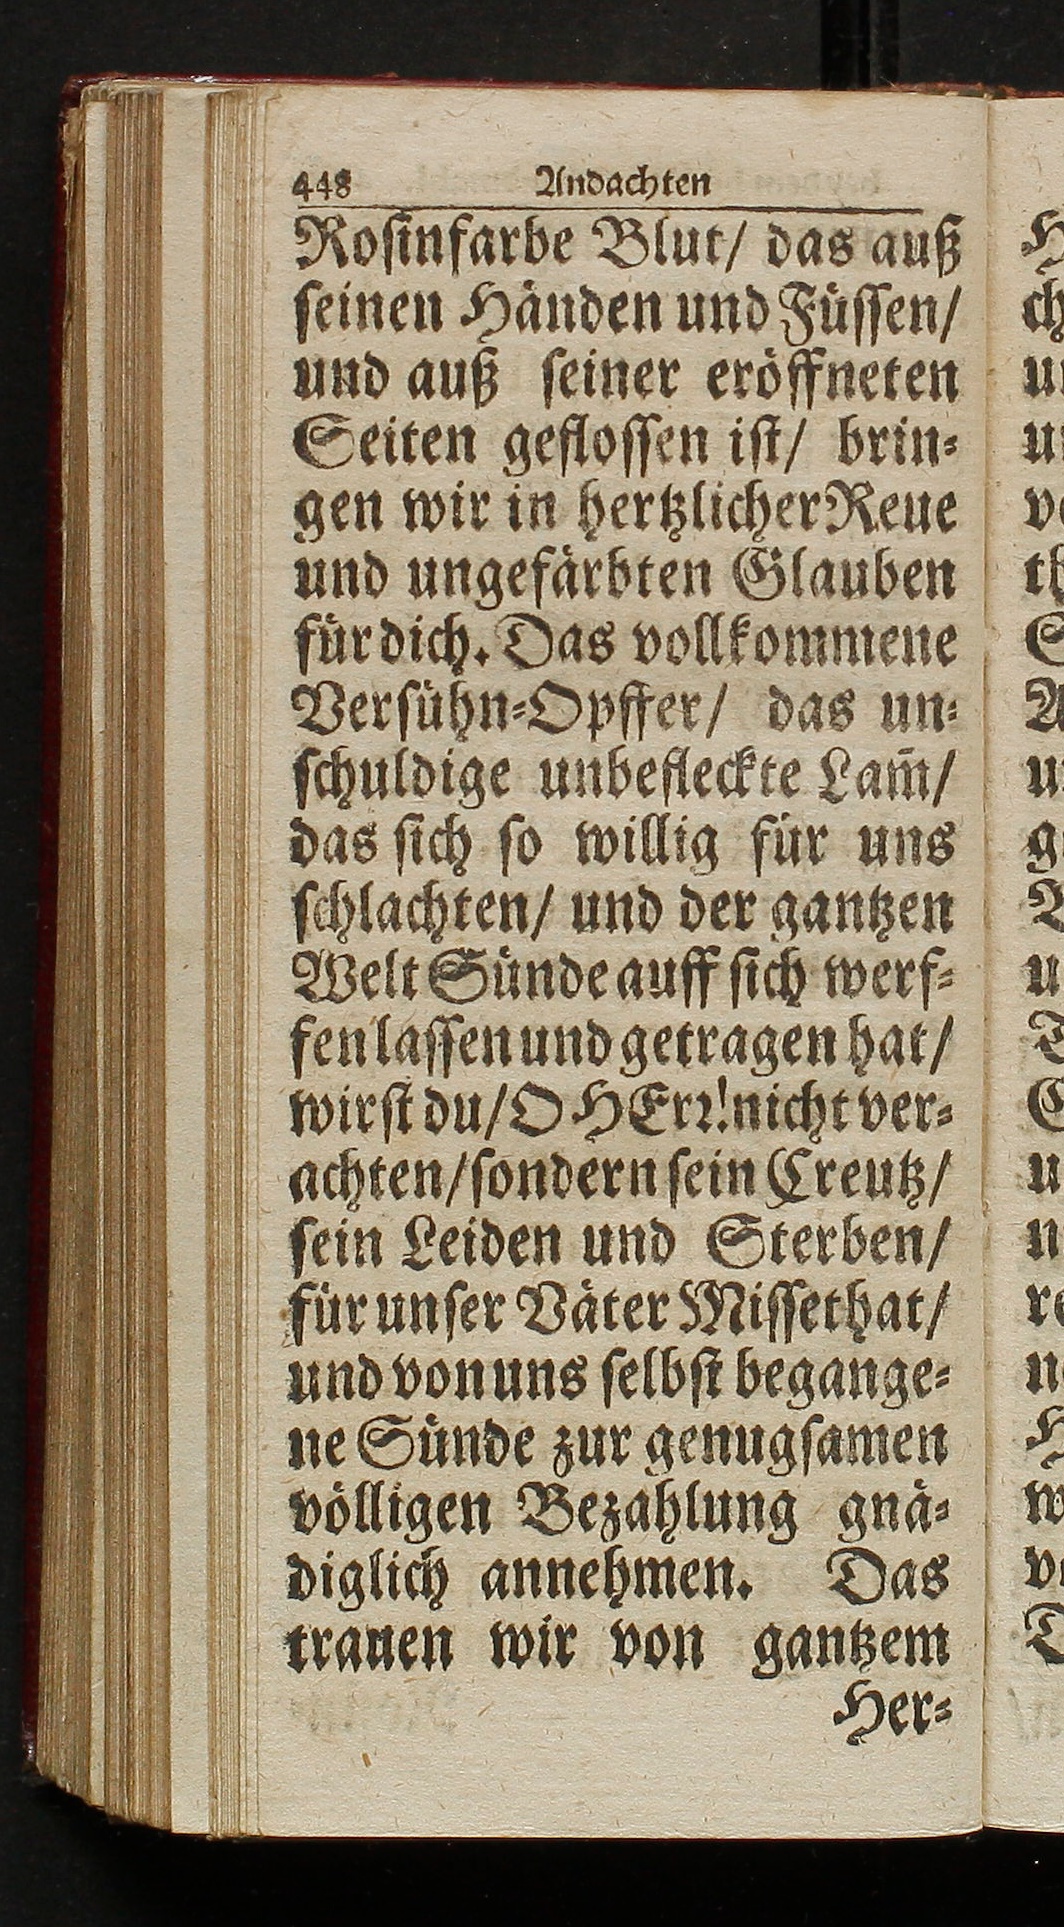 448 Andachten
Roſinfarbe Blut/ das auß
ſeinen Händen und Füſſen/
und auß ſeiner eröffneten
Seiten gefloſſen iſt/ brin⸗
gen wir in hertzlicher Reue
und ungefärbten Glauben
für dich. Das vollkommene
Verſühn⸗Opffer/ das un⸗
ſchuldige unbefleckte Lam̃/
das ſich ſo willig für uns
ſchlachten/ und der gantzen
Welt Sünde auff ſich werf⸗
fen laſſen und getragen hat/
wirſt du/ O HErꝛ! nicht ver⸗
achten/ ſondern ſein Creutz/
ſein Leiden und Sterben/
für unſer Väter Miſſethat/
und von uns ſelbſt begange⸗
ne Sünde zur genugſamen
völligen Bezahlung gnä⸗
diglich annehmen. Das
trauen wir von gantzem
Her⸗